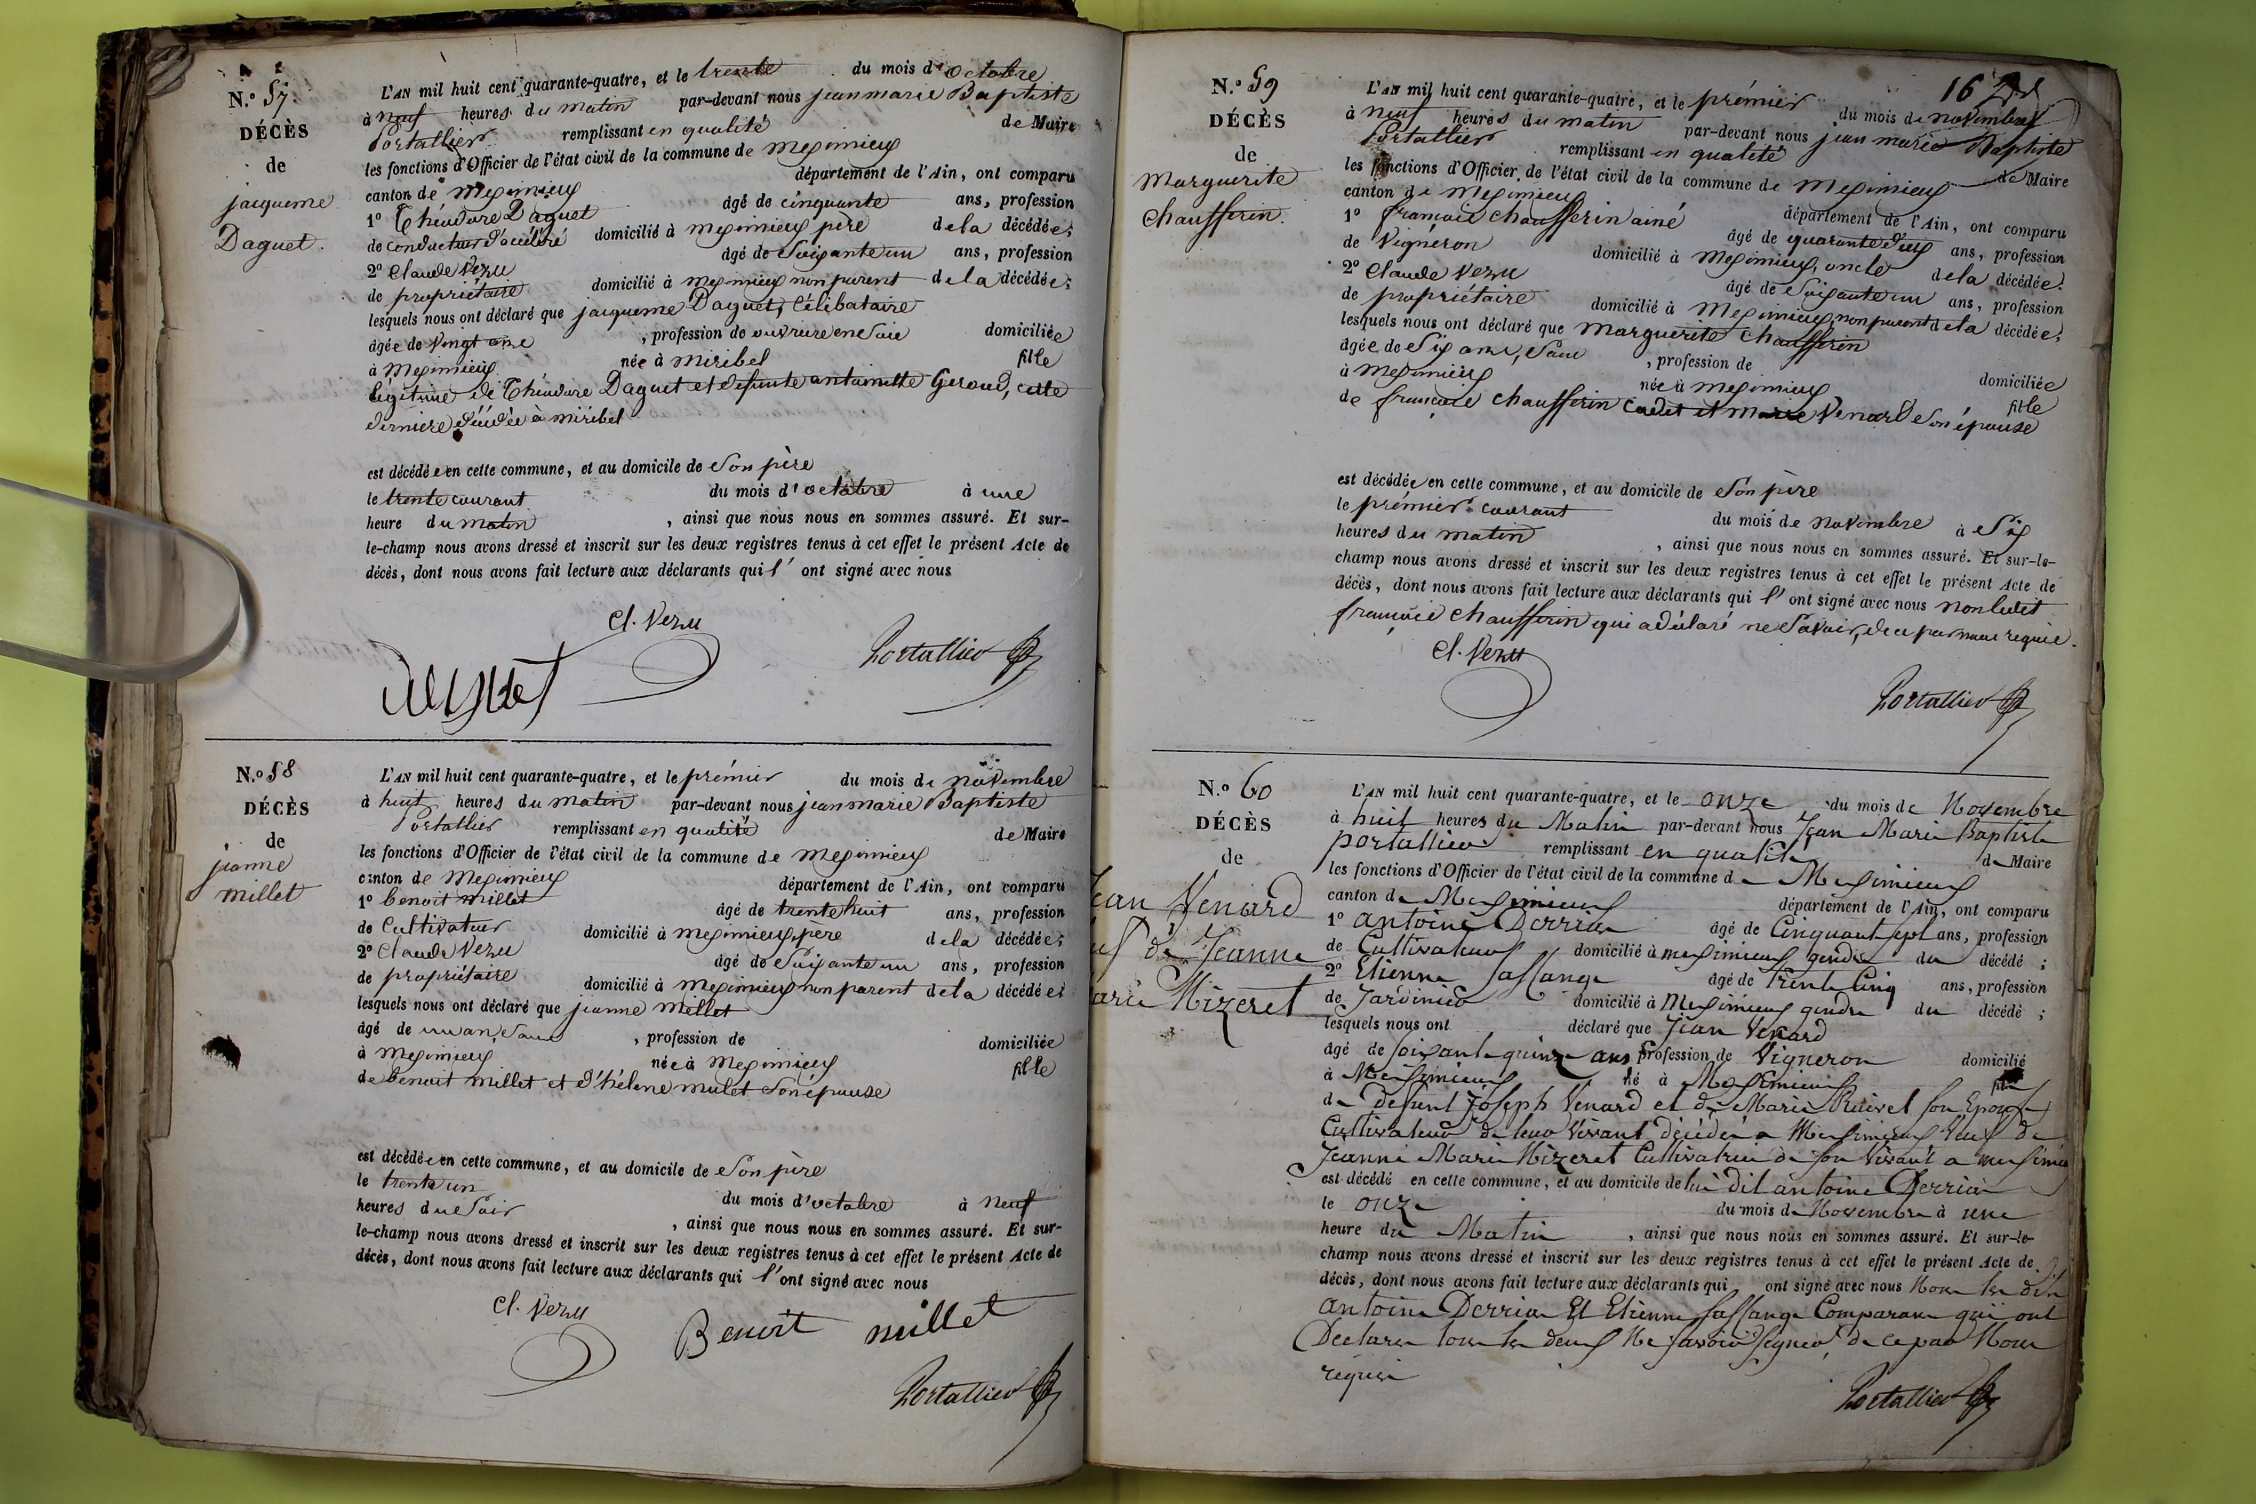 N.° 57.
DÉCÈS
de
jacqueme
Daguet.
L'AN mil huit cent quarante-quatre, et le trente du mois d'octobre
à neuf heures du matin par-devant nous jean marie Baptiste
Portallier remplissant en qualité de Maire
les fonctions d'Officier de l'état civil de la commune de meximieux
canton de meximieux département de l'Ain, ont comparu
1° Théodore Daguet âgé de cinquante ans, profession
de conducteur d'accéléré domicilié à meximieux père de la décédée;
2° Claude Vezu âgé de soixante un ans, profession
de propriétaire domicilié à meximieux non parent de la décédée;
lesquels nous ont déclaré que jacqueme Daguet, célibataire
âgée de vingt ans , profession de ouvrière en soie domiciliée
à meximieux née à miribel fille
légitime de Théodore Daguet et défunte antoinette Geroud, cette
dernière décédée à miribel
est décédée en cette commune, et au domicile de son père
le trente courant du mois d'octobre à une
heure du matin , ainsi que nous nous en sommes assuré. Et sur-
le-champ nous avons dressé et inscrit sur les deux registres tenus à cet effet le présent Acte de
décès, dont nous avons fait lecture aux déclarants qui l'ont signé avec nous
cl. Vezu
Daguet
Portallier
N.° 58
DÉCÈS
de
jeanne
millet
L'AN mil huit cent quarante-quatre, et le prémier du mois de novembre
à huit heures du matin par-devant nous jean marie Baptiste
Portallier remplissant en qualité de Maire
les fonctions d'Officier de l'état civil de la commune de meximieux
canton de meximieux département de l'Ain, ont comparu
1° benoit millet âgé de trente huit ans, profession
de cultivateur domicilié à meximieux, père de la décédée;
2° Claude Vezu âgé de soixante un ans, profession
de propriétaire domicilié à meximieux non parent de la décédée;
lesquels nous ont déclaré que jeanne millet
âgé de un an, sans , profession de domiciliée
à meximieux née à meximieux fille
de benoit millet et d'hélene mulet son épouse
est décédée en cette commune, et au domicile de son père
le trente un du mois d'octobre à neuf
heures du soir , ainsi que nous nous en sommes assuré. Et sur-
le-champ nous avons dressé et inscrit sur les deux registres tenus à cet effet le présent Acte de
décès, dont nous avons fait lecture aux déclarants qui l'ont signé avec nous
cl. Vezu
Benoit millet
Portallier
162
N.° 59
DÉCÈS
de
Marguerite
Chaufferin.
L'AN mil huit cent quarante-quatre, et le prémier du mois de novembre
à neuf heures du matin par-devant nous jean marie Baptiste
Portallier remplissant en qualité de Maire
les fonctions d'Officier de l'état civil de la commune de meximieux
canton de meximieux département de l'Ain, ont comparu
1° françois chaufferin ainé âgé de quarante deux ans, profession
de vigneron domicilié à meximieux, oncle de la décédée;
2° Claude Vezu âgé de soixante un ans, profession
de propriétaire domicilié à meximieux non parent de la décédée;
lesquels nous ont déclaré que marguerite chaufferin
âgée de six ans, sans , profession de domiciliée
à meximieux née à meximieux fille
de françois chaufferin cadet et marie Venard son épouse
est décédée en cette commune, et au domicile de son père
le prémier courant du mois de novembre à six
heures du matin , ainsi que nous nous en sommes assuré. Et sur-le-
champ nous avons dressé et inscrit sur les deux registres tenus à cet effet le présent Acte de
décès, dont nous avons fait lecture aux déclarants qui l'ont signé avec nous non ledit
françois chaufferin qui a déclaré ne savoir, de ce par nous requis.
cl. Vezu
Portallier
N.° 60
DÉCÈS
de
Jean Venard
de Jeanne
Marie Mizeret
L'AN mil huit cent quarante-quatre, et le onze du mois de Novembre
à huit heures du Matin par-devant nous Jean Marie Baptiste
portallier remplissant en qualité de Maire
les fonctions d'Officier de l'état civil de la commune de Meximieux
canton de Meximieux département de l'Ain, ont comparu
1° antoine Derrias âgé de Cinquant sept ans, profession
de Cultivateur domicilié à meximieux gendre du décédé ;
2° Etienne Lassange âgé de trente Cinq ans, profession
de Jardinier domicilié à Meximieux gendre du décédé ;
lesquels nous ont déclaré que Jean Venard
âgé de soixante quinze ans profession de Vigneron domicilié
à Meximieux né à Meximieux fils
de defunt Joseph Venard et de Marie son Epouse
Cultivateur de leur Vivant décédé a Meximieux Veuf de
Jeanne Marie Mizeret Cultivatrice de son Vivant a
est décédé en cette commune, et au domicile de lui dit antoine Derrias
le onze du mois de Novembre à une
heure du Matin , ainsi que nous nous en sommes assuré. Et sur-le-
champ nous avons dressé et inscrit sur les deux registres tenus à cet effet le présent Acte de
décès, dont nous avons fait lecture aux déclarants qui ont signé avec nous Non les dits
antoine Derrias Et Etienne Lassange Comparans qui ont
Declaré tous les deux Ne savoir signer, de ce par Nous
requis
Portallier